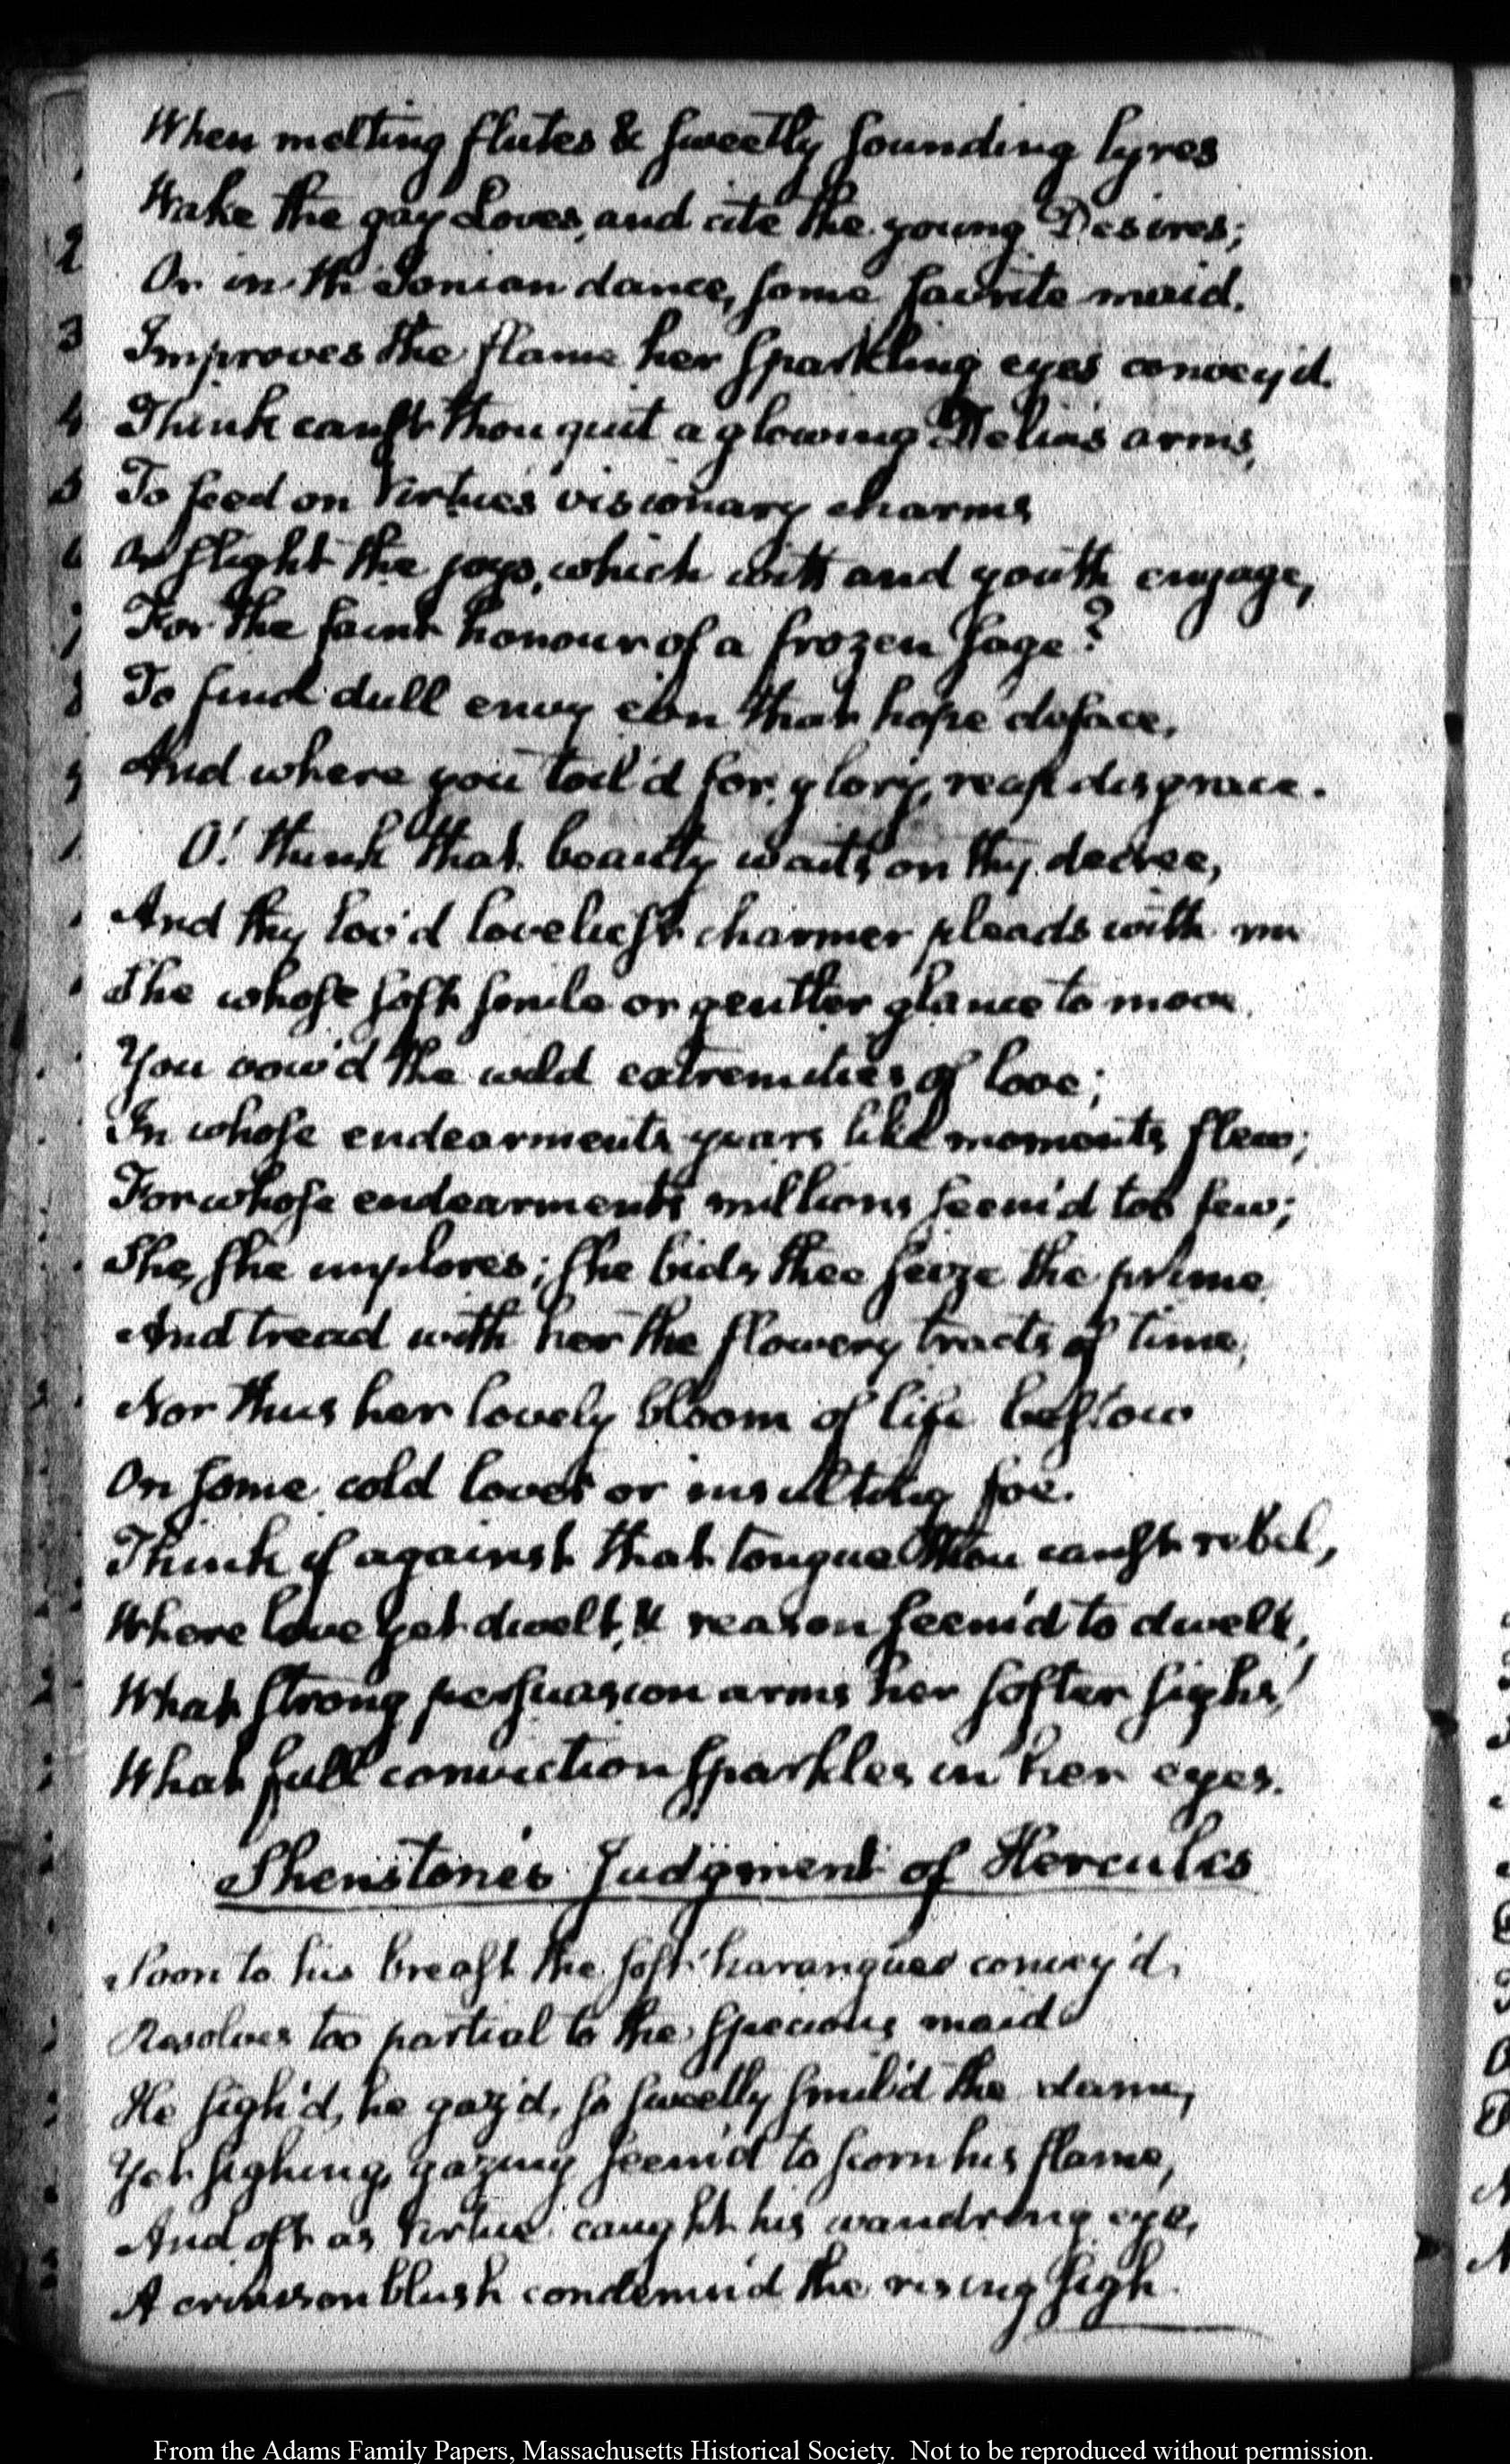 When melting flutes & sweetly sounding lyres
Wake the gay Loves, and cite the young Desires;
Or in th' Ionian dance, some favrite maid.
Improves the flame her sparkling eyes convey'd.
Think canst thou quit a glowing Delia's arms,
To feed on Virtue's visionary charms
Or slight the joys, which wit and youth engage,
For the faint honour of a frozen sage?
To find dull envy e'en that hope deface,
And where you toil'd for glory, reap disgrace.
O! think that beauty waits on thy decree,
And thy lov'd loveliest charmer pleads with me
She whose soft smile or gentler glance to move
You vow'd the wild extremities of love;
In whose endearments years like moments flew;
For whose endearments millions seem'd too few;
She, she implores; she bids thee seize the prime
And tread with her the flowery tracts of time;
Nor thus her lovely bloom of life bestow
On some cold lover or insulting foe.
Think if against that tongue thou canst rebel,
Where love yet dwelt, & reason seem'd to dwell,
What strong persuasion arms her softer sighs!
What full conviction sparkles in her eyes.
Shenstone's Judgment of Hercules
Soon to his breast the soft harangues convey'd,
Resolves too partial to the specious maid
He sigh'd, he gaz'd, so sweetly smil'd the dame,
Yet sighing, gazing seem'd to scorn his flame,
And oft as Virtue caught his wandring eye,
A crimson blush condemn'd the rising sigh.
2
3
4
5
6
From the Adams Family Papers, Massachusetts Historical Society. Not to be reproduced without permission.